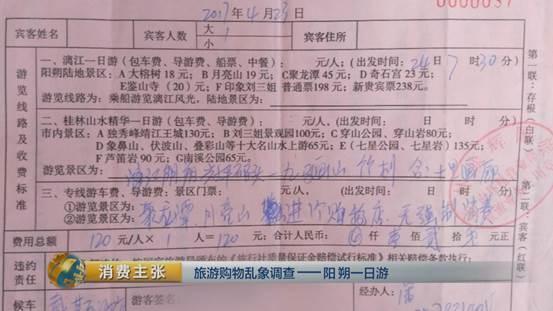 0000037
2017年4月23日
宾客姓名
人数
大 1
小
宾客住所
游览线路及收费标准
一、漓江一日游（包车费、导游费、船票、中餐）： 元/人；（出发时间：24日7时30分）
阳朔陆地景区：A大榕树18元；B月亮山19元；C聚龙潭45元；D奇石宫23元；
E鉴山寺（20）元；F印象刘三姐 普通票198元；新贵宾票238元。
游览线路为：乘船游览漓江风光，陆地景区为：
二、桂林山水精华一日游（包车费、导游费） 元/人；（出发时间： 日 时 分）
市内景区：A独秀峰靖江王城130元；B刘三姐景观园100元；C穿山公园、穿山岩80元；
D象鼻山、伏波山、叠彩山等十大名山水上游65元；E（七星公园、七星岩）135元；
F芦笛岩90元；G南溪公园65元。
游览景区为：
九马画山 竹刬 含：十里画廊
三、专线游车费、导游费、景区门票： 元/人；（出发时间： 日 时 分）
①游览景区为：聚龙潭 月亮山 进 店 无强制消费
②游览景区为：
费用总额
120元/人×1人=120元；合计人民币： 仟壹佰贰拾 元正
违约责任
赔偿试行标准》相关赔偿条数执行。
候车
游客签名：
经办人：潘
第一联：存根（白联）
第二联：宾客（红联）
消费主张
旅游购物乱象调查——阳朔一日游